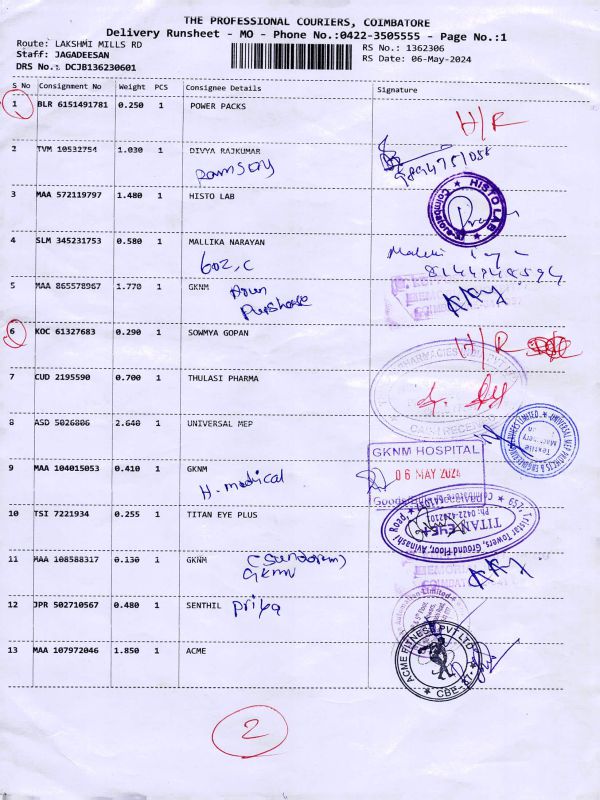 THE PROFESSIONAL COURIERS, COIMBATORE
Delivery Runsheet - MO - Phone No.:0422-3505555 - Page No.:1
Route: LAKSHMI MILLS RD RS No.: 1362306
Staff: JAGADEESAN RS Date: 06-May-2024
DRS No.: DCJB136230601
S No Consignment No Weight PCS Consignee Details Signature
1 BLR 6151491781 0.250 1 POWER PACKS
H/R
2 TVM 10532754 1.030 1 DIVYA RAJKUMAR
3 MAA 572119797 1.480 1 HISTO LAB
HISTO LAB
Coimbatore
4 SLM 345231753 0.580 1 MALLIKA NARAYAN
602, C
8144948594
5 MAA 865578967 1.770 1 GKNM
6 KOC 61327683 0.290 1 SOWMYA GOPAN
H/R
7 CUD 2195590 0.700 1 THULASI PHARMA
8 ASD 5026806 2.640 1 UNIVERSAL MEP
9 MAA 104015053 0.410 1 GKNM
H. medical
GKNM HOSPITAL
06 MAY 2024
10 TSI 7221934 0.255 1 TITAN EYE PLUS
TITAN EYE
Tristar Towers, Ground Floor, Avinashi Road,
11 MAA 108588317 0.130 1 GKNM
(Sundaram)
GKMN
12 JPR 502710567 0.480 1 SENTHIL
Priya
13 MAA 107972046 1.850 1 ACME
ACME FITNESS PVT LTD
CBE-37
2